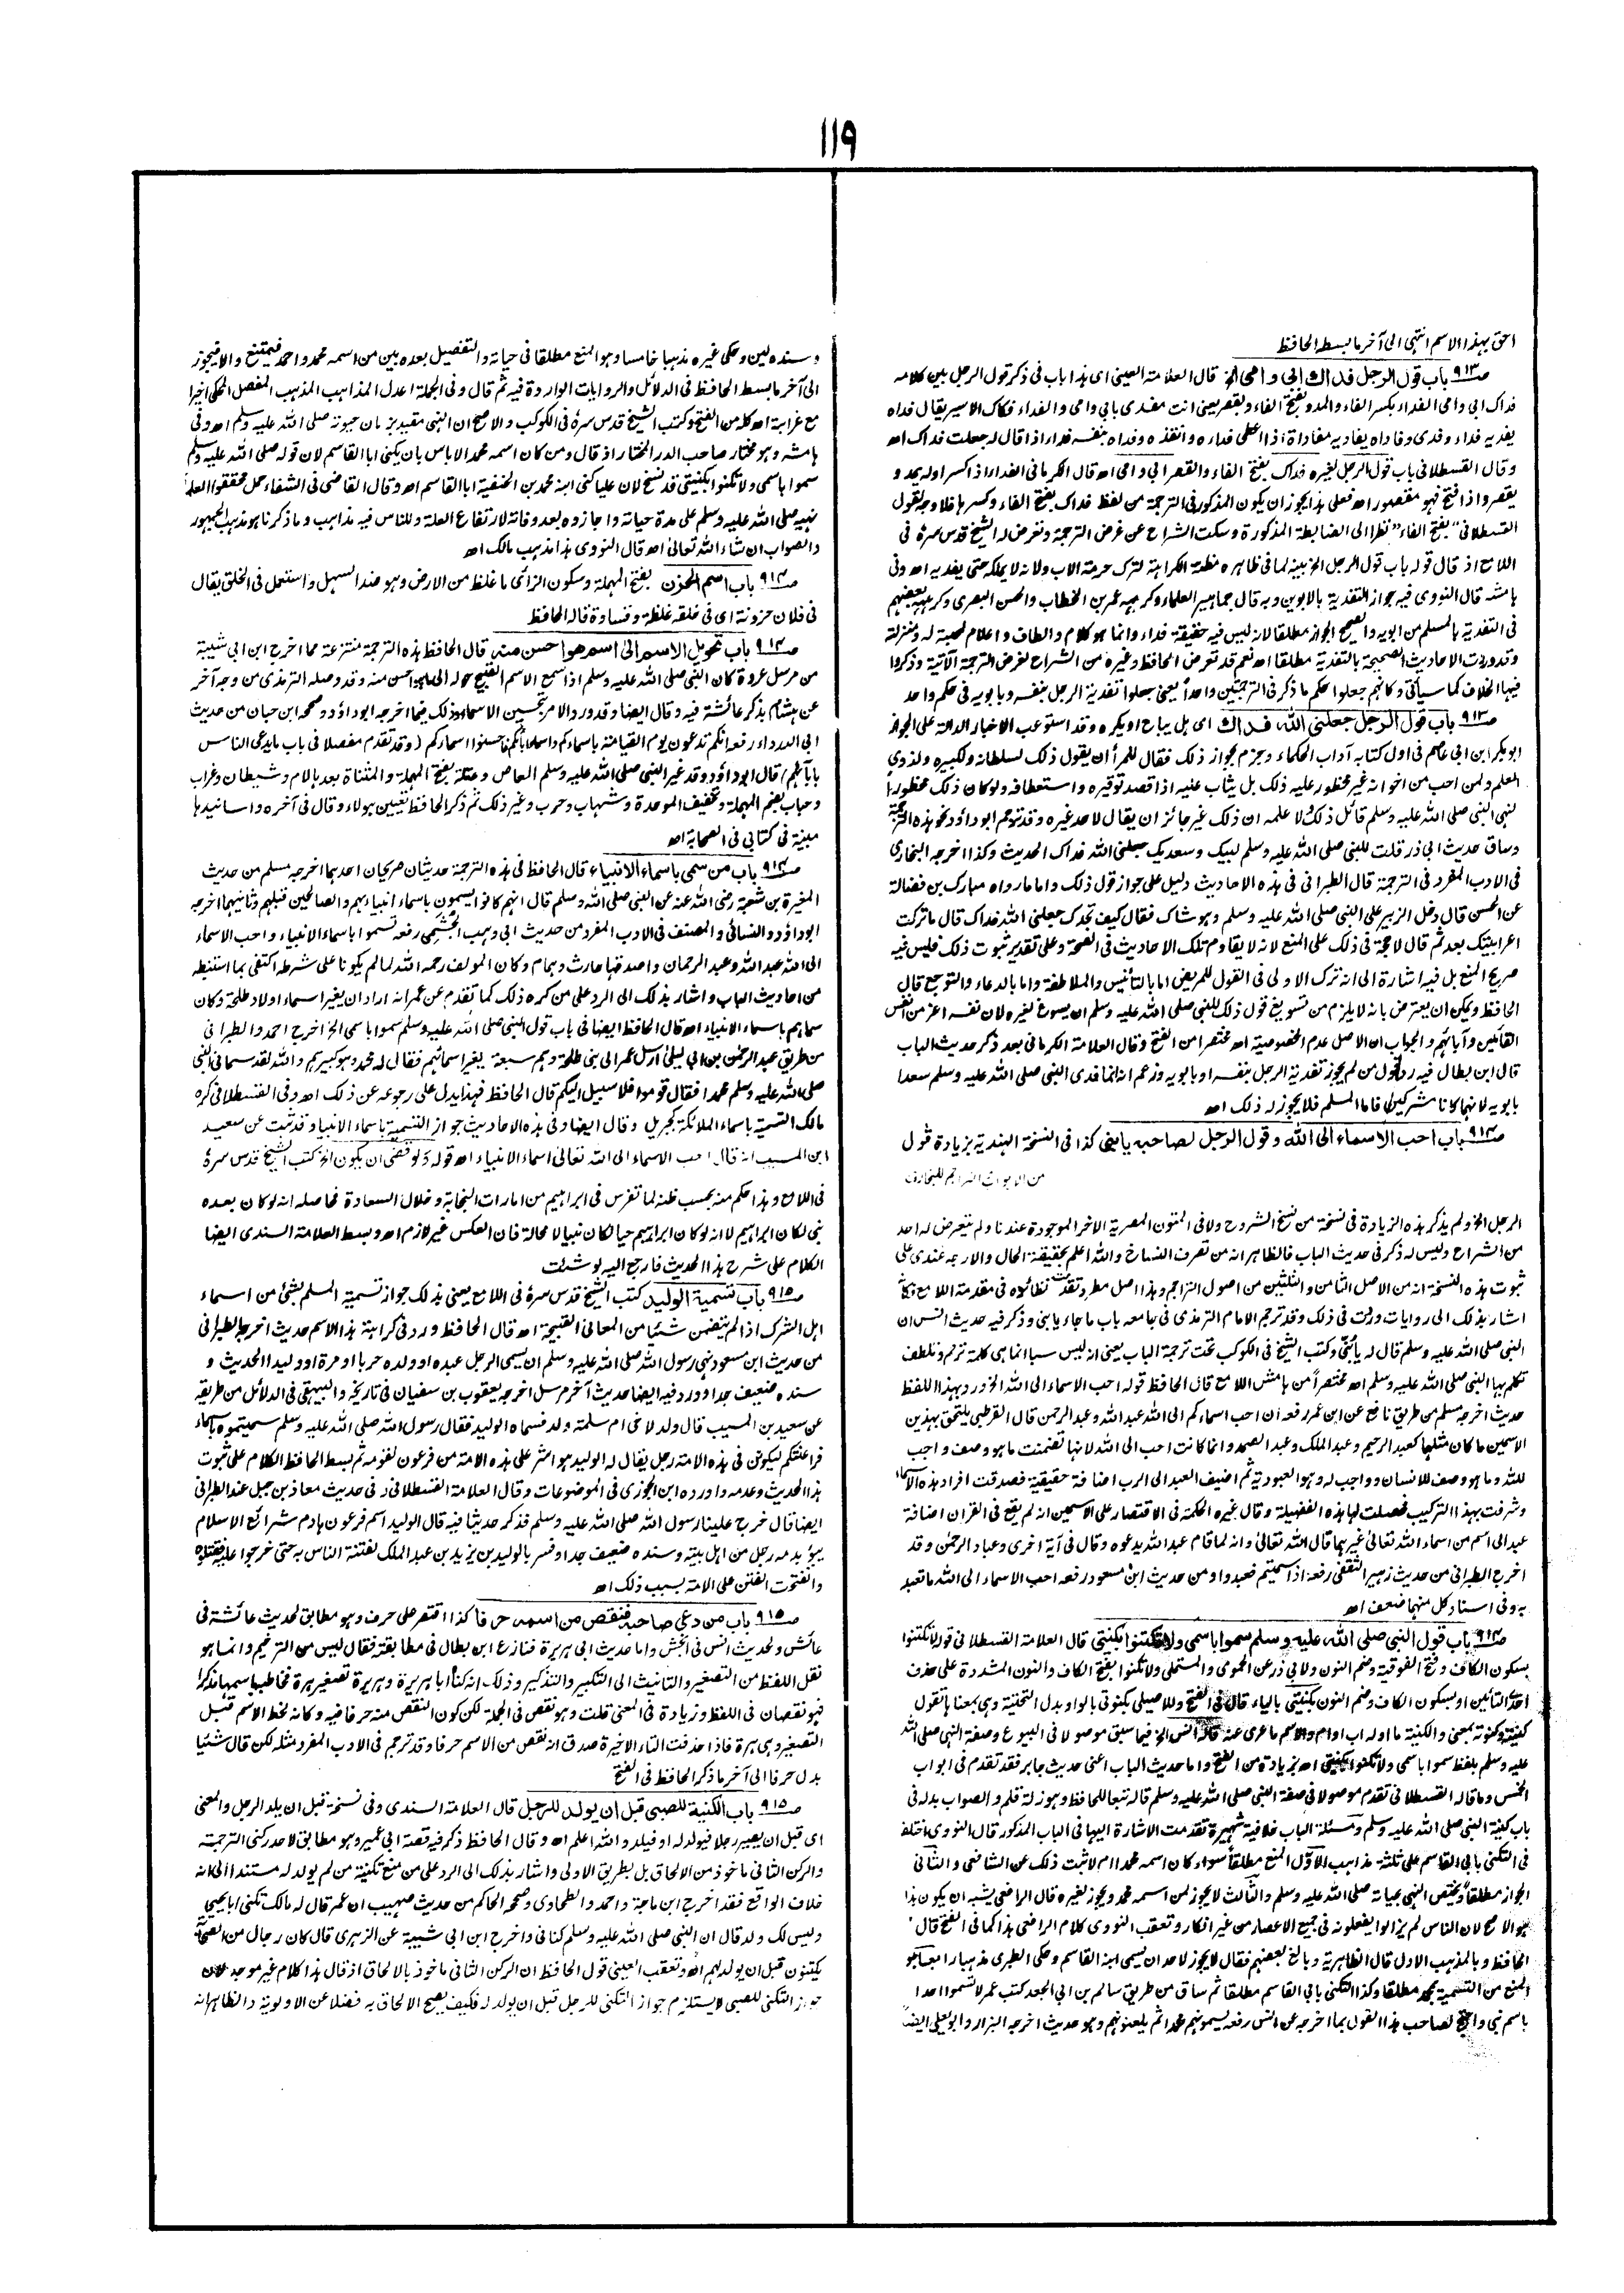 ١١٩
احق بهذا الاسم انتهى الى آخر ما بسط الحافظ
ص٩١٣ باب قول الرجل فداك ابى و امى الخ قال العلامة العينى اى هذا باب فى ذكر قول الرجل بين كلامه
فداك ابى وامى الفداء بكسر الفاء والمد وبفتح الفاء وبقصر يعنى انت مفدى بابى وامى والفداء فكاك الاسير يقال فداه
يفديه فداء وفدى وفاداه يفاديه مفاداة اذا اعطى فداءه وانقذه وفداه بنفسه فداء اذا قال له جعلت فداك اه
وقال القسطلانى باب قول الرجل لغيره فداك بفتح الفاء والقصر ابى وامى اه قال الكرمانى الفداء اذا كسر اوله يمد و
يقصر واذا فتح فهو مقصور اه فعلى هذا يجوز ان يكون المذكور فى الترجمة من لفظ فداك بفتح الفاء وكسرها فلا وجه لقول
القسطلانى "بفتح الفاء" نظرا الى الضابطة المذكورة وسكت الشراح عن غرض الترجمة وتعرض له الشيخ قدس سره فى
اللامع اذ قال قوله باب قول الرجل الخ بينه لما فى ظاهره مظنة الكراهة لترك حرمة الاب ولانه لا يملكه حتى يفديه اه وفى
هامشه قال النووى فيه جواز التفدية بالابوين وبه قال جماهير العلماء وكرهه عمر بن الخطاب والحسن البصرى وكرهه بعضهم
فى التفدية بالمسلم من ابويه والصحيح الجواز مطلقا لانه ليس فيه حقيقة فداء وانما هو كلام والطاف واعلام لمحبة له ومنزلة
وقد وردت الاحاديث الصحيحة بالتفدية مطلقا اه نعم قد تعرض الحافظ وغيره من الشراح لغرض الترجمة الآتية وذكروا
فيها الخلاف كما سيأتى وكانهم جعلوا حكم ما ذكر فى الترجمتين واحدا يعنى جعلوا تفدية الرجل بنفسه وبابويه فى حكم واحد
ص٩١٣ باب قول الرجل جعلنى الله فداك اى هل يباح او يكره وقد استوعب الاخبار الدالة على الجواز
ابوبكر ابن ابى عاصم فى اول كتابه آداب الحكماء وجزم بجواز ذلك فقال للمرء أن يقول ذلك لسلطانه ولكبيره ولذوى
العلم ولمن احب من اخوانه غير محظور عليه ذلك بل يثاب عليه اذا قصد توقيره واستعطافه ولو كان ذلك محظورا
لنهى النبى صلى الله عليه وسلم قائل ذلك ولا علمه ان ذلك غير جائز ان يقال لاحد غيره وقد ترجم ابوداؤد نحو هذه الترجمة
وساق حديث ابى ذر قلت للنبى صلى الله عليه وسلم لبيك وسعديك جعلنى الله فداك الحديث وكذا اخرجه البخارى
فى الادب المفرد فى الترجمة قال الطبرانى فى هذه الاحاديث دليل على جواز قول ذلك واما ما رواه مبارك بن فضالة
عن الحسن قال دخل الزبير على النبى صلى الله عليه وسلم وهو شاك فقال كيف تجدك جعلنى الله فداك قال ما تركت
اعرابيتك بعد ثم قال لا حجة فى ذلك على المنع لانه لا يقاوم تلك الاحاديث فى الصحة وعلى تقدير ثبوت ذلك فليس فيه
صريح المنع بل فيه اشارة الى انه ترك الاولى فى القول للمريض اما بالتأنيس والملاطفة واما بالدعاء والتوجع قال
الحافظ ويمكن ان يعترض بانه لا يلزم من تسويغ قول ذلك للنبى صلى الله عليه وسلم ان يسوغ لغيره لان نفسه اعز من انفس
القائلين وآبائهم والجواب ان الاصل عدم الخصوصية اه مختصرا من الفتح وقال العلامة الكرمانى بعد ذكر حديث الباب
قال ابن بطال فيه رد لقول من لم يجوز تفدية الرجل بنفسه او بابويه وزعم انه انما فدى النبى صلى الله عليه وسلم سعدا
بابويه لانهما كانا مشركين فاما المسلم فلا يجوز له ذلك اه
ص٩١٤ باب احب الاسماء الى الله وقول الرجل لصاحبه يابنى كذا فى النسخة الهندية بزيادة قول
من الابواب التراجم للبخارى
الرجل الخ ولم يذكر هذه الزيادة فى نسخة من نسخ الشروح ولا فى المتون المصرية الاخر الموجودة عندنا ولم يتعرض له احد
من الشراح وليس له ذكر فى حديث الباب فالظاهر انه من تصرف النساخ والله اعلم بحقيقة الحال والاوجه عندى على
ثبوت هذه النسخة انه من الاصل الثامن والثلثين من اصول التراجم وهذا اصل مطرد تقدمت نظائره فى مقدمة اللامع وكانه
اشار بذلك الى روايات وردت فى ذلك وقد ترجم الامام الترمذى فى جامعه باب ما جاء يابنى وذكر فيه حديث انس ان
النبى صلى الله عليه وسلم قال له يابنى وكتب الشيخ فى الكوكب تحت ترجمة الباب يعنى انه ليس سبا انما هى كلمة ترحم وتلطف
تكلم بها النبى صلى الله عليه وسلم اه مختصرا من هامش اللامع قال الحافظ قوله احب الاسماء الى الله الخ ورد بهذا اللفظ
حديث اخرجه مسلم من طريق نافع عن ابن عمر رفعه أن احب اسماءكم الى الله عبد الله وعبد الرحمن قال القرطبى يلتحق بهذين
الاسمين ما كان مثلها كعبد الرحيم وعبد الملك وعبد الصمد وانما كانت احب الى الله لانها تضمنت ما هو وصف واجب
لله وما هو وصف للانسان وواجب له وهو العبودية ثم اضيف العبد الى الرب اضافة حقيقية فصدقت افراد هذه الاسماء
وشرفت بهذا التركيب فحصلت لها هذه الفضيلة وقال غيره الحكمة فى الاقتصار على الاسمين انه لم يقع فى القران اضافة
عبد الى اسم من اسماء الله تعالى غيرهما قال الله تعالى وانه لما قام عبد الله يدعوه وقال فى آية اخرى وعباد الرحمٰن وقد
اخرج الطبرانى من حديث زهير الثقفى رفعه اذا سميتم فعبدوا ومن حديث ابن مسعود رفعه احب الاسماء الى الله ما تعبد
به وفى اسناد كل منهما ضعف اه
ص٩١٤ باب قول النبى صلى الله عليه وسلم سموا باسمى ولا تكتنوا بكنيتى قال العلامة القسطلانى قوله لا تكتنوا
بسكون الكاف وفتح الفوقية وضم النون ولابى ذر عن الحموى والمستملى ولا تكنوا بفتح الكاف والنون المشددة على حذف
احدى التائين او بسكون الكاف وضم النون بكنيتى بالياء قال فى الفتح وللاصيلى بكنوتى بالواو بدل التحتية وهى بمعناها تقول
كنيته وكنوته بمعنى والكنية ما اوله اب او ام والاسم ما عرى عنه قاله انس الخ فيما سبق موصولا فى البيوع وصفة النبى صلى الله
عليه وسلم بلفظ سموا باسمى ولا تكنوا بكنيتى اه بزيادة من الفتح واما حديث الباب اعنى حديث جابر فقد تقدم فى ابواب
الخمس وما قاله القسطلانى تقدم موصولا فى صفة النبى صلى الله عليه وسلم قاله تبعا للحافظ وهو زلة قلم والصواب بدله فى
باب كنية النبى صلى الله عليه وسلم ومسئلة الباب خلافية شهيرة تقدمت الاشارة اليها فى الباب المذكور قال النووى اختلف
فى التكنى بابى القاسم على ثلثة مذاهب الاول المنع مطلقا سواء كان اسمه محمدا ام لا ثبت ذلك عن الشافعى والثانى
الجواز مطلقا ويختص النهى بحياته صلى الله عليه وسلم والثالث لا يجوز لمن اسمه محمد ويجوز لغيره قال الرافعى يشبه ان يكون هذا
هو الاصح لان الناس لم يزالوا يفعلونه فى جميع الاعصار من غير انكار وتعقب النووى كلام الرافعى هذا كما فى الفتح قال
الحافظ وبالمذهب الاول قال الظاهرية وبالغ بعضهم فقال لا يجوز لاحد ان يسمى ابنه القاسم وحكى الطبرى مذهبا رابعا وهو
المنع من التسمية بمحمد مطلقا وكذا التكنى بابى القاسم مطلقا ثم ساق من طريق سالم بن ابى الجعد كتب عمر لا تسموا احدا
باسم نبى واحتج لصاحب هذا القول بما اخرجه عن انس رفعه يسمونهم محمدا ثم يلعنونهم وهو حديث اخرجه البزار وابو يعلى ايضا
وسنده لين وحكى غيره مذهبا خامسا وهو المنع مطلقا فى حياته والتفصيل بعده بين من اسمه محمد واحمد فيمتنع والا فيجوز
الى آخر ما بسط الحافظ فى الدلائل والروايات الواردة فيه ثم قال وفى الجملة اعدل المذاهب المذهب المفصل المحكى اخيرا
مع غرابته اه كله من الفتح وكتب الشيخ قدس سره فى الكوكب والاصح ان النهى مقيد بزمان حيوته صلى الله عليه وسلم اه وفى
هامشه وهو مختار صاحب الدر المختار اذ قال ومن كان اسمه محمد الاباس بان يكنى ابا القاسم لان قوله صلى الله عليه وسلم
سموا باسمى ولا تكنوا بكنيتى قد نسخ لان عليا كنى ابنه محمد بن الحنفية ابا القاسم اه وقال القاضى فى الشفاء حمل محققوا العلماء
نهيه صلى الله عليه وسلم على مدة حياته واجازوه بعد وفاته لارتفاع العلة وللناس فيه مذاهب وما ذكرناه هو مذهب الجمهور
والصواب ان شاء الله تعالى اه قال النووى هذا مذهب مالك اه
ص٩١٤ باب اسم الحزن بفتح المهملة وسكون الزائى ما غلظ من الارض وهو ضد السهل واستعمل فى الخلق يقال
فى فلان حزونة اى فى خلقه غلظة وقساوة قاله الحافظ
ص٩١٤ باب تحويل الاسم الى اسم هو احسن منه قال الحافظ هذه الترجمة منتزعة مما اخرج ابن ابى شيبة
من مرسل عروة كان النبى صلى الله عليه وسلم اذا سمع الاسم القبيح حوله الى ما هو احسن منه وقد وصله الترمذى من وجه آخر
عن هشام بذكر عائشة فيه وقال ايضا وقد ورد الامر بتحسين الاسماء وذلك فيما اخرجه ابوداؤد وصححه ابن حبان من حديث
ابى الدرداء رفعه انكم تدعون يوم القيامة باسمائكم واسماء آبائكم فاحسنوا اسماءكم (وقد تقدم مفصلا فى باب ما يدعى الناس
بابائهم) قال ابوداؤد وقد غير النبى صلى الله عليه وسلم العاص وعتلة بفتح المهملة والمثناة بعدها لام وشيطان وغراب
وحباب بضم المهملة وتخفيف الموحدة وشهاب وحرب وغير ذلك ثم ذكر الحافظ تعيين هولاء وقال فى آخره واسانيدها
مبينة فى كتابى فى الصحابة اه
ص٩١٤ باب من سمى باسماء الانبياء قال الحافظ فى هذه الترجمة حديثان صريحان احدهما اخرجه مسلم من حديث
المغيرة بن شعبة رضى الله عنه عن النبى صلى الله وسلم قال انهم كانوا يسمون باسماء انبياءهم والصالحين قبلهم وثانيهما اخرجه
ابوداؤد والنسائى والمصنف فى الادب المفرد من حديث ابى وهب الجشمى رفعه تسموا باسماء الانبياء واحب الاسماء
الى الله عبد الله وعبد الرحمان واصدقها حارث وهمام وكان المولف رحمه الله لما لم يكونا على شرطه اكتفى بما استنبطه
من احاديث الباب واشار بذلك الى الرد على من كره ذلك كما تقدم عن عمر انه اراد ان يغير اسماء اولاد طلحة وكان
سماهم باسماء الانبياء اه قال الحافظ ايضا فى باب قول النبى صلى الله عليه وسلم سموا باسمى الخ اخرج احمد والطبرانى
من طريق عبد الرحمٰن بن ابى ليلى ارسل عمر الى بنى طلحة وهم سبعة يغير اسمائهم فقال له محمد وهو كبيرهم والله لقد سمانى النبى
صلى الله عليه وسلم محمدا فقال قوموا فلا سبيل اليكم قال الحافظ فهذا يدل على رجوعه عن ذلك اه وفى القسطلانى كره
مالك التسمية باسماء الملائكة كجبريل وقال ايضا وفى هذه الاحاديث جواز التسمية باسماء الانبياء وقد ثبت عن سعيد
ابن المسيب انه قال احب الاسماء الى الله تعالى اسماء الانبياء اه قوله ولو قضى ان يكون الخ كتب الشيخ قدس سره
فى اللامع وهذا حكم منه بحسب ظنه لما تفرس فى ابراهيم من امارات النجابة وخلال السعادة فحاصله انه لو كان بعده
نبى لكان ابراهيم لا انه لو كان ابراهيم حيا لكان نبيا لا محالة فان العكس غير لازم اه وبسط العلامة السندى ايضا
الكلام على شرح هذا الحديث فارجع اليه لو شئت
ص٩١٥ باب تسمية الوليد كتب الشيخ قدس سره فى اللامع يعنى بذلك جواز تسمية المسلم بشئ من اسماء
اهل الشرك اذا لم يتضمن شيئا من المعانى القبيحة اه قال الحافظ ورد فى كراهة هذا الاسم حديث اخرجه الطبرانى
من حديث ابن مسعود نهى رسول الله صلى الله عليه وسلم ان يسمى الرجل عبده او ولده حربا او مرة او وليدا الحديث و
سنده ضعيف جدا وورد فيه ايضا حديث آخر مرسل اخرجه يعقوب بن سفيان فى تاريخه والبيهقى فى الدلائل من طريقه
عن سعيد بن المسيب قال ولد لاخى ام سلمة ولد فسماه الوليد فقال رسول الله صلى الله عليه وسلم سميتموه باسماء
فراعنتكم ليكونن فى هذه الامة رجل يقال له الوليد هو اشر على هذه الامة من فرعون لقومه ثم بسط الحافظ الكلام على ثبوت
هذا الحديث وعدمه واورده ابن الجوزى فى الموضوعات وقال العلامة القسطلانى وفى حديث معاذ بن جبل عند الطبرانى
ايضا قال خرج علينا رسول الله صلى الله عليه وسلم فذكر حديثا فيه قال الوليد اسم فرعون هادم شرائع الاسلام
يبوء بدمه رجل من اهل بيته وسنده ضعيف جدا وفسر بالوليد بن يزيد بن عبد الملك لفتنة الناس به حتى خرجوا عليه فقتلوه
وانفتحت الفتن على الامة بسبب ذلك اه
ص٩١٥ باب من دعى صاحبه فنقص من اسمه حرفا كذا اقتصر على حرف وهو مطابق لحديث عائشة فى
عائش ولحديث انس فى انجش واما حديث ابى هريرة فنازع ابن بطال فى مطابقته فقال ليس من الترخيم وانما هو
نقل اللفظ من التصغير والتانيث الى التكبير والتذكير وذلك انه كناه ابا هريرة وهريرة تصغير هرة فخاطبه باسمها مذكرا
فهو نقصان فى اللفظ وزيادة فى المعنى قلت وهو نقص فى الجملة لكن كون النقص منه حرفا فيه وكانه لحظ الاسم قبل
التصغير وهى هرة فاذا حذفت التاء الاخيرة صدق انه نقص من الاسم حرفا وقد ترجم فى الادب المفرد مثله لكن قال شيئا
بدل حرفا الى آخر ما ذكر الحافظ فى الفتح
ص٩١٥ باب الكنية للصبى قبل ان يولد للرجل قال العلامة السندى وفى نسخة قبل ان يلد الرجل والمعنى
اى قبل ان يصير رجلا فيولد له او فيلد والله اعلم اه وقال الحافظ ذكر فيه قصة ابى عمير وهو مطابق لاحد ركنى الترجمة
والركن الثانى ماخوذ من الالحاق بل بطريق الاولى واشار بذلك الى الرد على من منع تكنية من لم يولد له مستندا الى انه
خلاف الواقع فقد اخرج ابن ماجة واحمد والطحاوى وصححه الحاكم من حديث صهيب ان عمر قال له مالك تكنى ابا يحيى
وليس لك ولد قال ان النبى صلى الله عليه وسلم كنانى واخرج ابن ابى شيبة عن الزهرى قال كان رجال من الصحابة
يكتنون قبل ان يولد لهم اه وتعقب العينى قول الحافظ ان الركن الثانى ماخوذ بالالحاق اذ قال هذا كلام غير موجه لان
جواز التكنى للصبى لا يستلزم جواز التكنى للرجل قبل ان يولد له فكيف يصح الالحاق به فضلا عن الاولوية والظاهر انه